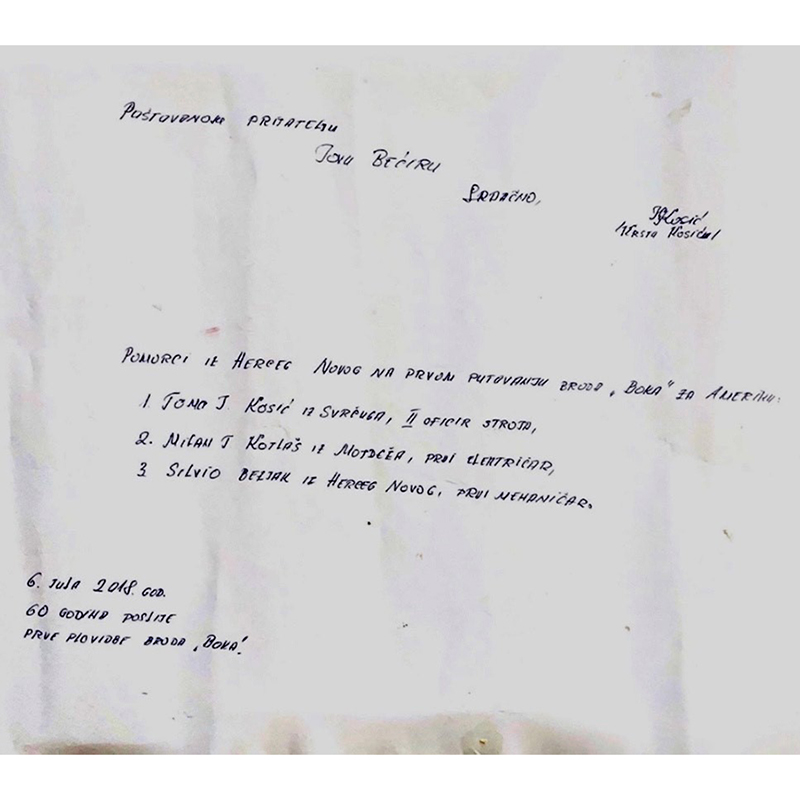 Poštovanom prijatelju
Tomu Bećiru
Srdačno,
Kosić
Krsto Kosić
Pomorci iz Herceg Novog na prvom putovanju broda „Boka“ za Ameriku:
1. Tomo J. Kosić iz Svrčuga, II oficir stroja,
2. Milan J. Kotlaš iz Mojdeža, prvi električar,
3. Silvio Beljak iz Herceg Novog, prvi mehaničar.
6. jula 2018. god.
60 godina poslije
prve plovidbe broda „Boka“.